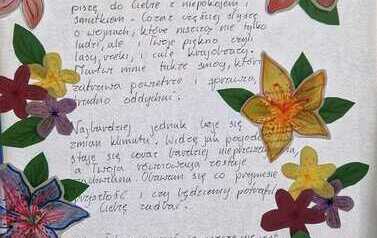 piszę do Ciebie z niepokojem i
smutkiem. Coraz częściej słyszę
o wojnach, które niszczą nie tylko
ludzi, ale i Twoje piękno czyli
lasy, rzeki, i całe krajobrazy.
Martwi mnie także smog, który
zatruwa powietrze i sprawia,
trudno oddychać.
Najbardziej jednak boję się
zmian klimatu. Widzę jak pogoda
staje się coraz bardziej
a Twoja równowaga zostaje
Obawiam się co przyniesie
przyszłość i czy będziemy potrafili
Ciebie zadbać.